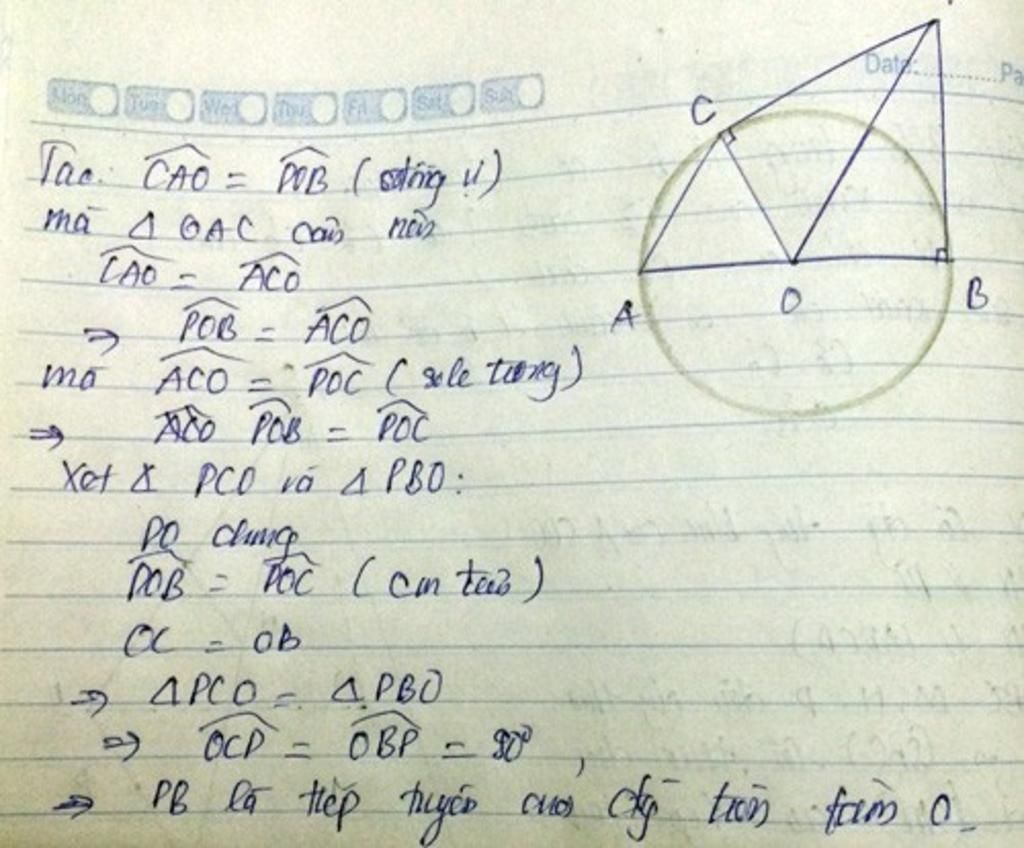 Mon Tue Wed Thu Fri Sat Sun
Date: Pa
Ta có: CAO = POB (đồng vị)
mà Δ OAC cân nên
CAO = ACO
⇒ POB = ACO
mà ACO = POC (sole trong)
⇒ POB = POC
Xét Δ PCO và Δ PBO:
PO chung
POB = POC (cm trên)
OC = OB
⇒ ΔPCO = ΔPBO
⇒ OCP = OBP = 90°
⇒ PB là tiếp tuyến của đg tròn tâm O
C
A
O
B